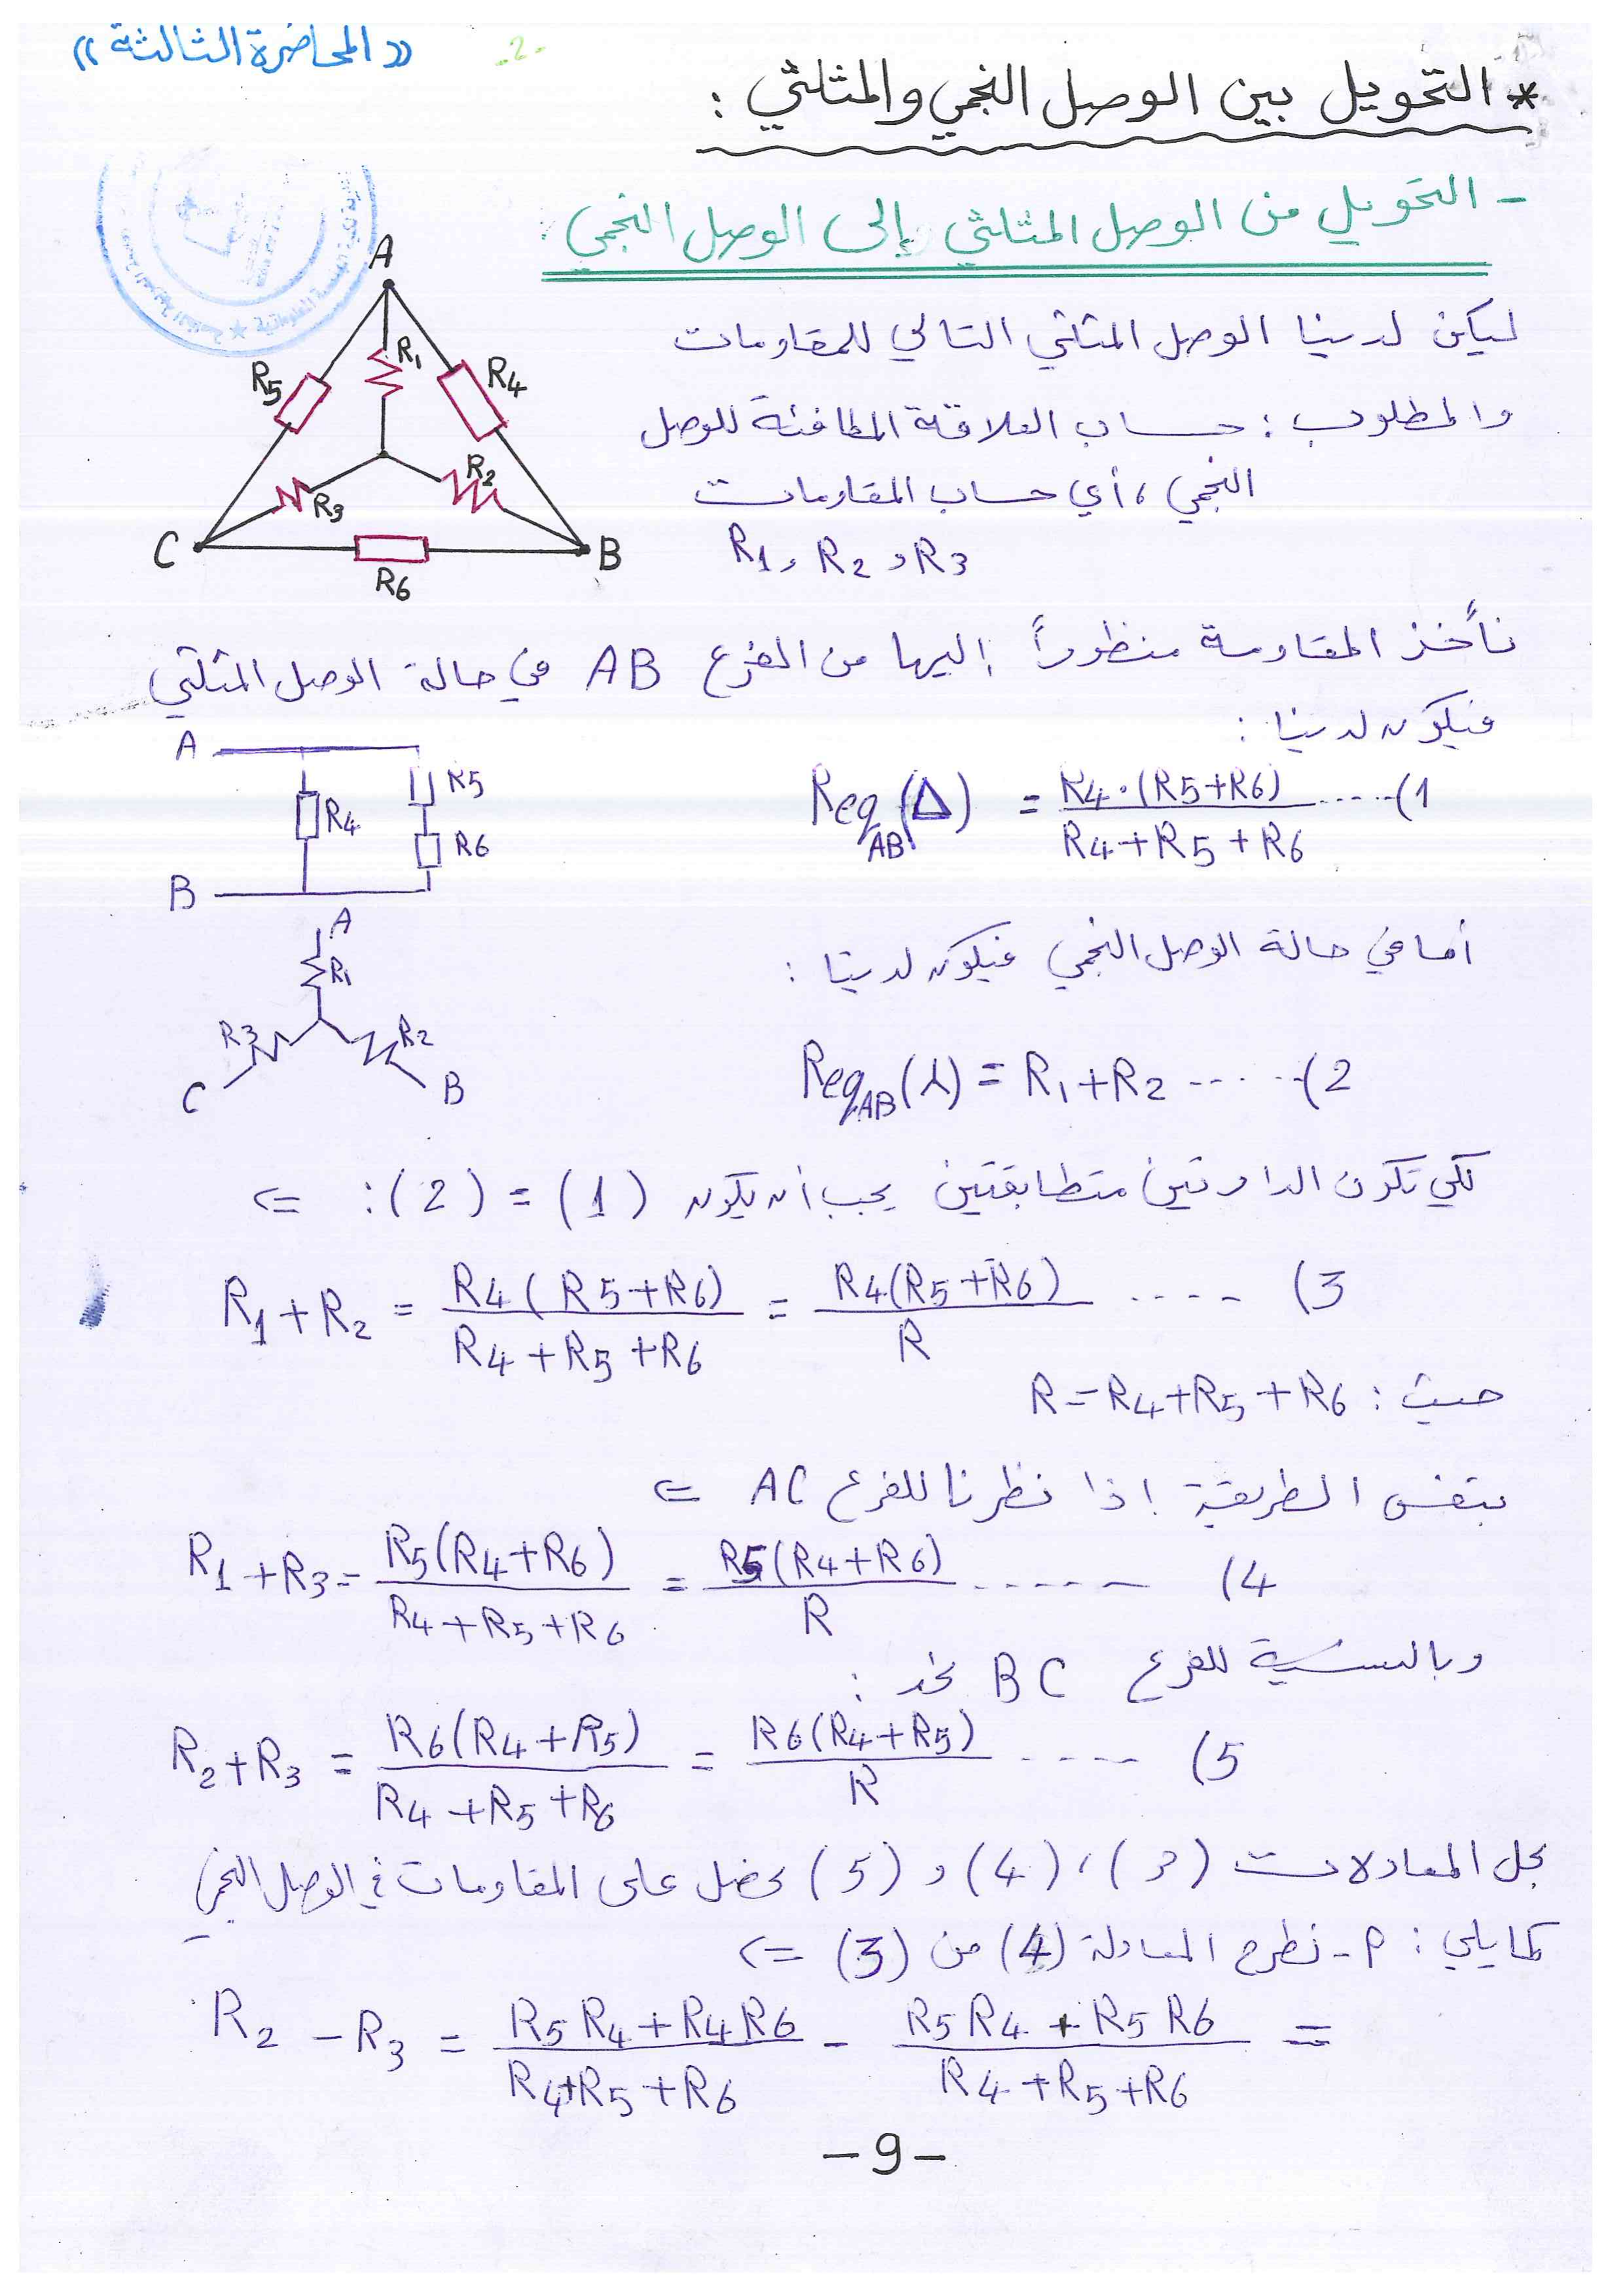 « المحاضرة الثالثة »
-2-
* التحويل بين الوصل النجمي والمثلثي :
- التحويل من الوصل المثلثي إلى الوصل النجمي :
ليكن لدينا الوصل المثلثي التالي للمقاومات
والمطلوب : حساب العلاقة المكافئة للوصل
النجمي ، أي حساب المقاومات
R1 , R2 , R3
A
R5
R1
R4
R3
R2
C
R6
B
نأخذ المقاومة منظوراً إليها من الفرع AB في حالة الوصل المثلثي
فيكون لدينا :
A
R4
R5
R6
B
ReqAB(Δ) = R4.(R5+R6) / R4+R5+R6 .....(1
أما في حالة الوصل النجمي فيكون لدينا :
A
R1
R3
R2
C
B
ReqAB(λ) = R1+R2 ......(2
لكي تكون الدارتين متطابقتين يجب أن يكون (1) = (2) : <=
R1+R2 = R4(R5+R6) / R4+R5+R6 = R4(R5+R6) / R .... (3
حيث : R=R4+R5+R6
بنفس الطريقة إذا نظرنا للفرع AC <=
R1+R3= R5(R4+R6) / R4+R5+R6 = R5(R4+R6) / R ...... (4
وبالنسبة للفرع BC نجد :
R2+R3 = R6(R4+R5) / R4+R5+R6 = R6(R4+R5) / R .... (5
بحل المعادلات (3) ، (4) و (5) نحصل على المقاومات في الوصل النجمي
كمايلي : م- نطرح المعادلة (4) من (3) <=
R2 - R3 = R5R4+R4R6 / R4+R5+R6 - R5R4+R5R6 / R4+R5+R6 =
-9-